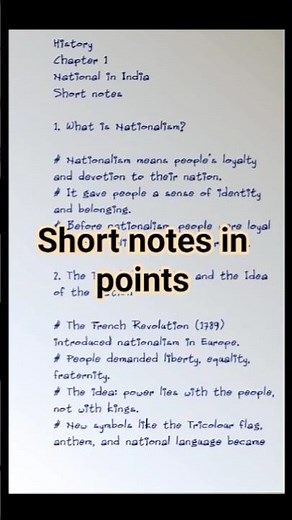 History
Chapter 1
National in India
Short notes
1. What is Nationalism?
# Nationalism means people's loyalty
and devotion to their nation.
# It gave people a sense of identity
and belonging.
# Before nationalism, people were loyal
Short notes in
points
2. The and the Idea
of the
# The French Revolution (1789)
introduced nationalism in Europe.
# People demanded liberty, equality,
fraternity.
# The idea: power lies with the people,
not with kings.
# New symbols like the Tricolour flag,
anthem, and national language became